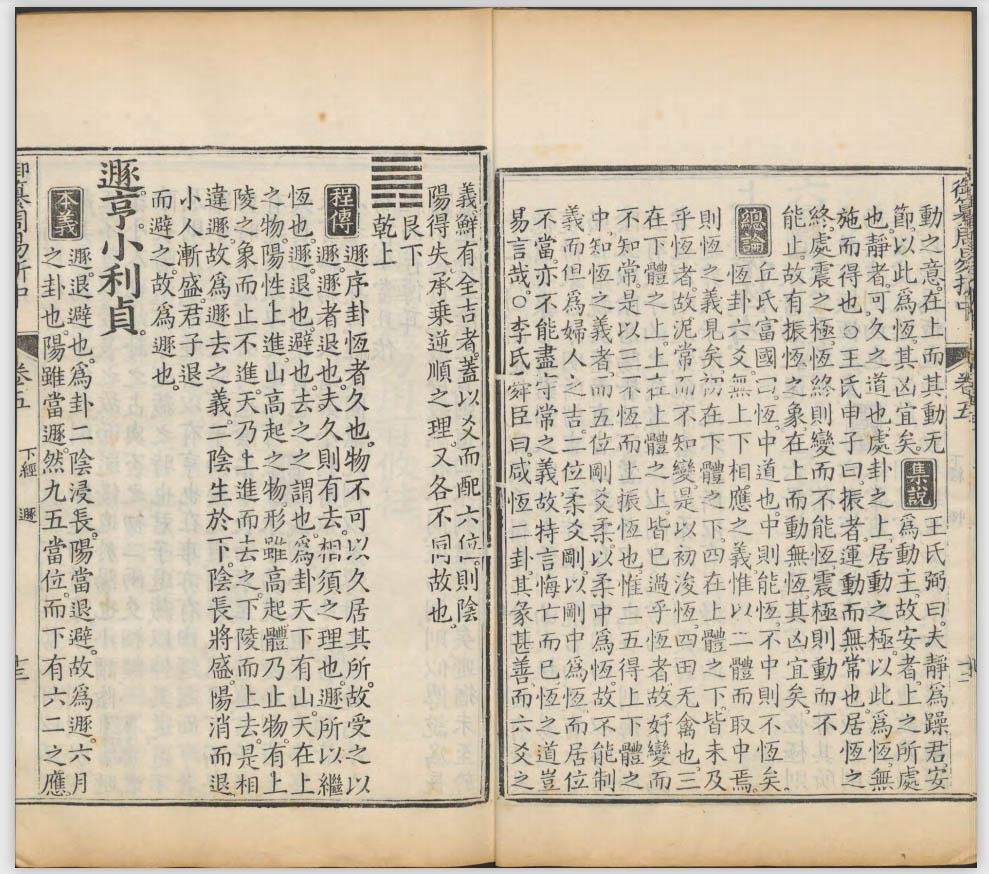 御纂周易折中
卷五
動之意在上而其動无
節以此爲恆其凶宜矣集說王氏弼曰夫靜爲躁君安
爲動主故安者上之所處
也靜者可久之道也處卦之上居動之極以此爲恆無
施而得也○王氏申子曰振者運動而無常也居恆之
終處震之極恆終則變而不能恆震極則動而不
能止故有振恆之象在上而動無恆其凶宜矣
總論丘氏富國曰恆中道也中則能恆不中則不恆矣
恆卦六爻無上下相應之義惟以二體而取中焉
則恆之義見矣初在下體之下四在上體之下皆未及
乎恆者故泥常而不知變是以初浚恆四田无禽也三
在下體之上上在上體之上皆已過乎恆者故好變而
不知常是以三不恆而上振恆也惟二五得上下體之
中知恆之義者而五位剛爻柔以柔中爲恆故不能制
義而但爲婦人之吉二位柔爻剛以剛中爲恆而居位
不當亦不能盡守常之義故特言悔亡而已恆之道豈
易言哉○李氏舜臣曰咸恆二卦其彖甚善而六爻之
義鮮有全吉者蓋以爻而配六位則陰
陽得失承乘逆順之理又各不同故也
艮下
乾上
程傳遯序卦恆者久也物不可以久居其所故受之以
遯遯者退也夫久則有去相須之理也遯所以繼
恆也遯退也避也去之之謂也爲卦天下有山天在上
之物陽性上進山高起之物形雖高起體乃止物有上
陵之象而止不進天乃上進而去之下陵而上去是相
違遯故爲遯去之義二陰生於下陰長將盛陽消而退
小人漸盛君子退
而避之故爲遯也
遯亨小利貞
本義遯退避也爲卦二陰浸長陽當退避故爲遯六月
之卦也陽雖當遯然九五當位而下有六二之應
御纂周易折中
卷五
下經
遯